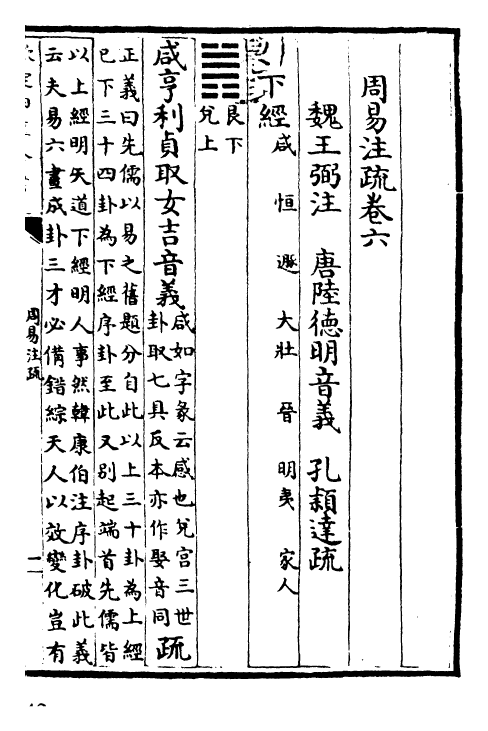 周易注疏卷六
魏王弼注　唐陸德明音義　孔穎達疏
下經　咸　恒　遯　大壯　晉　明夷　家人
䷞艮下
兌上
咸亨利貞取女吉音義咸如字彖云感也兌宫三世
卦取七具反本亦作娶音同疏
正義曰先儒以易之舊題分自此以上三十卦為上經
已下三十四卦為下經序卦至此又別起端首先儒皆
以上經明天道下經明人事然韓康伯注序卦破此義
云夫易六畫成卦三才必備錯綜天人以效變化豈有
周易注疏
一